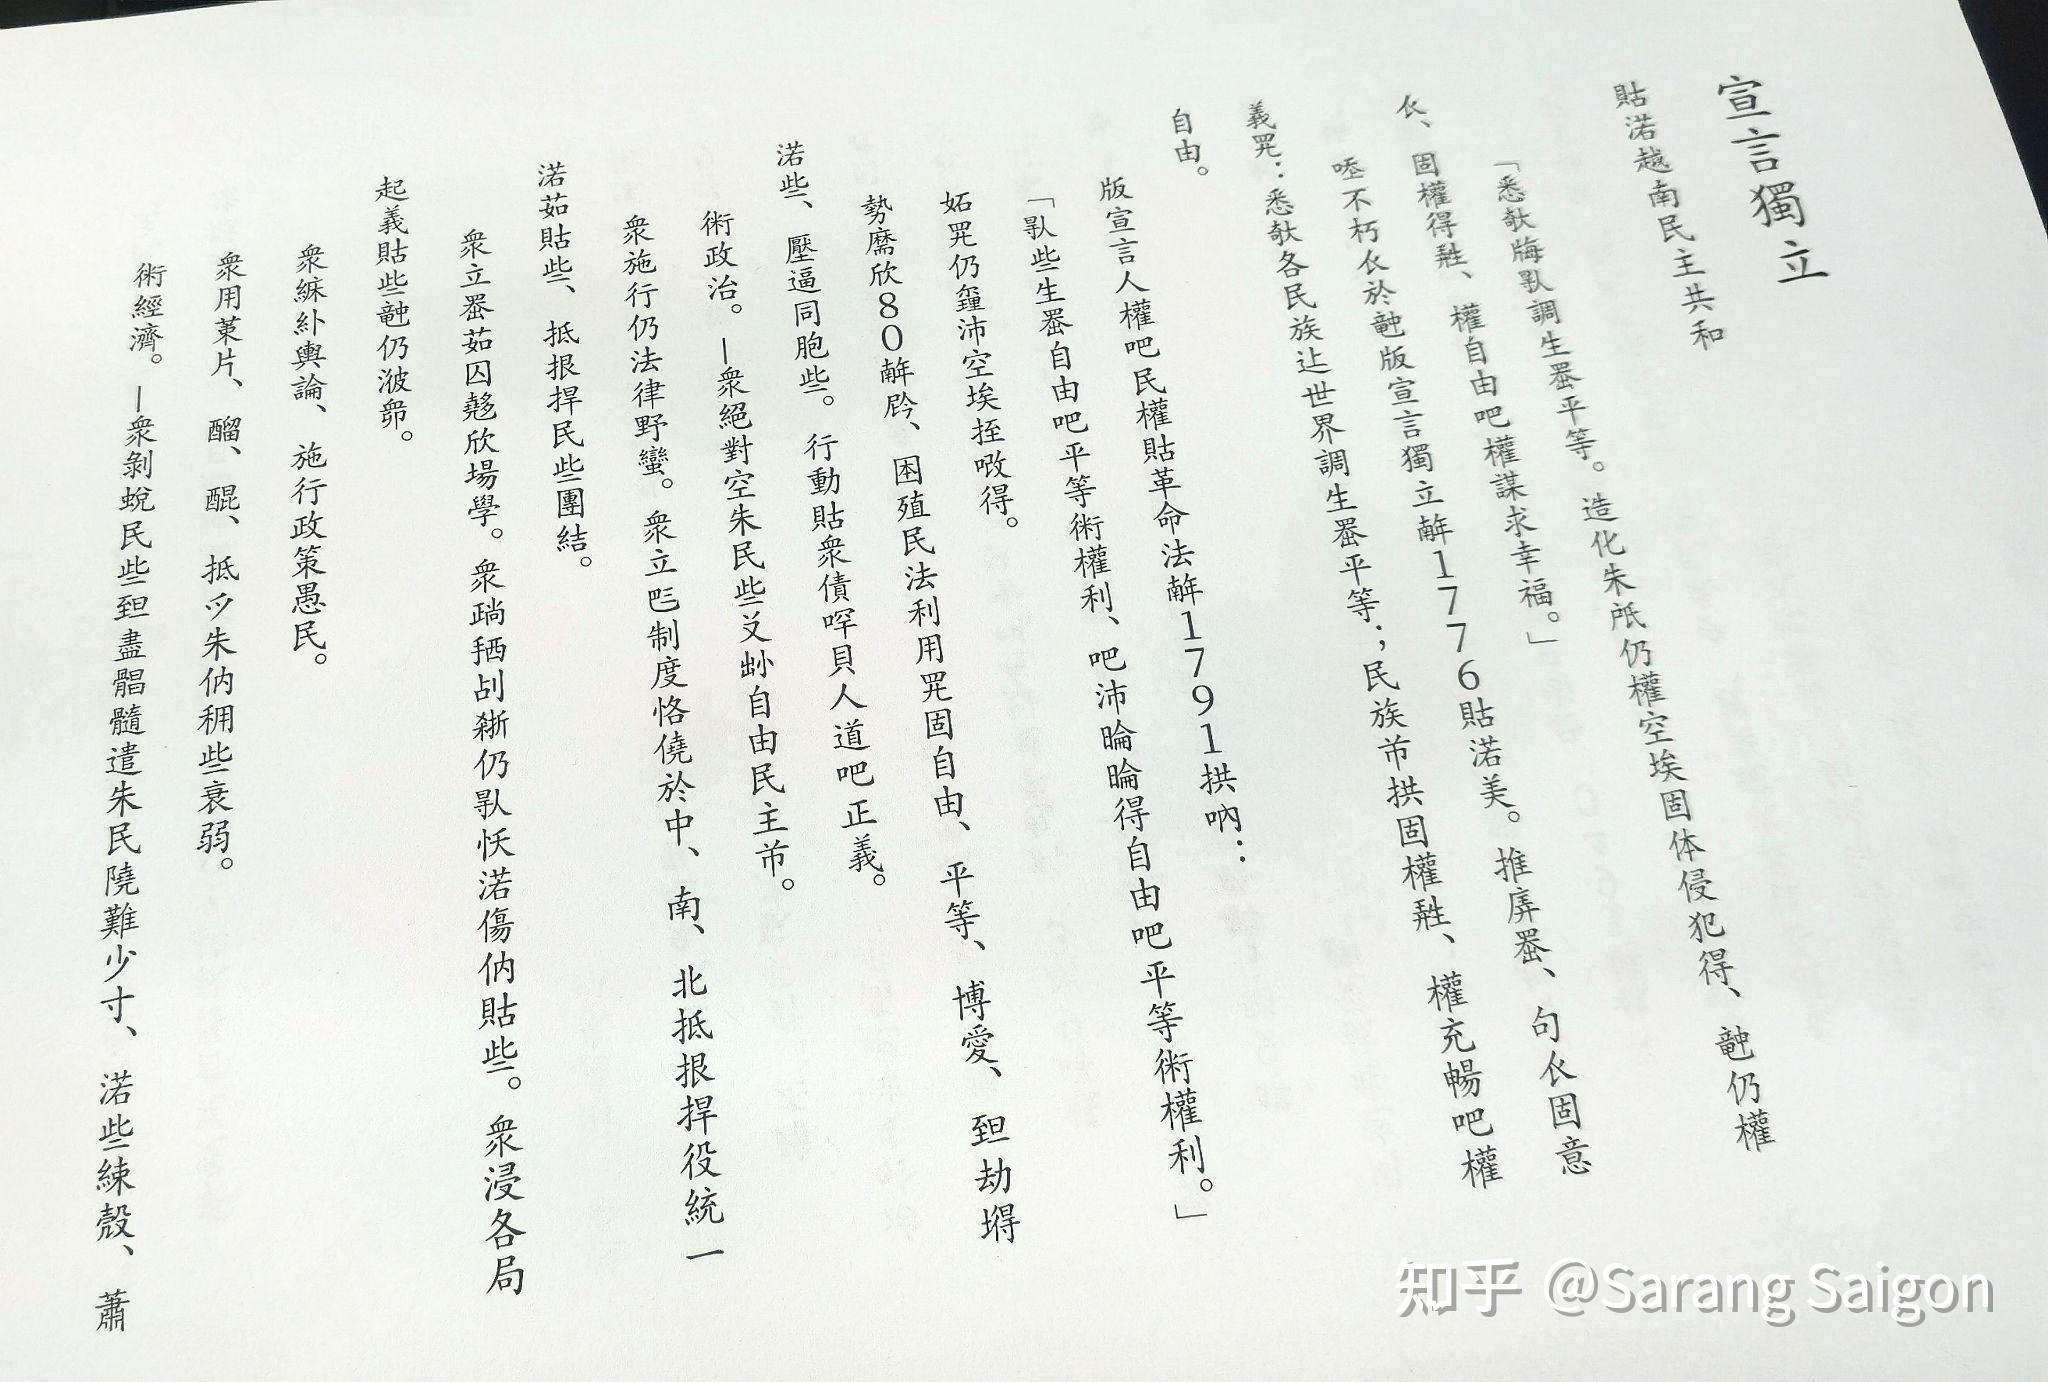 宣言獨立
貼渃越南民主共和
「悉𪥘每𠊚調生𦋦平等。造化朱𣱆仍權空埃固体侵犯得、𥪝仍權
𧘇、固權得𤯨、權自由吧權謀求幸福。」
𠳒不朽𧘇於𥪝版宣言獨立𢆥1776貼渃美。推𢌌𦋦、句𧘇固意
義𱺵：悉𪥘各民族𨑗世界調生𦋦平等；民族芇拱固權𤯨、權充暢吧權
自由。
版宣言人權吧民權貼革命法𢆥1791拱吶：
「𠊚些生𦋦自由吧平等術權利、吧沛㫻㫻得自由吧平等術權利。」
妬𱺵仍𨤮沛空埃挃㗂得。
勢𦓡欣80𢆥𫢩、困殖民法利用𱺵固自由、平等、博愛、𦤾劫塄
渃些、壓逼同胞些。行動貼衆債唕貝人道吧正義。
術政治。—衆絕對空朱民些爻𡮈自由民主芇。
衆施行仍法律野蠻。衆立𠀧制度恪僥於中、南、北抵拫捍役統一
渃茹貼些、抵拫捍民些團結。
衆立𦋦茹囚𡘯欣場學。衆𨀊𢬣刮𣩂仍𠊚𢚸渃傷㑚貼些。衆浸各局
起義貼些𥪝仍㳥𧖱。
衆綀紨輿論、施行政策愚民。
衆用菓片、醞、醌、抵𫜵朱㑚𥢆些衰弱。
術經濟。—衆剝蛻民些𦤾盡𩩖髓遣朱民隢難少寸、渃些練殼、蕭
知乎 @Sarang Saigon